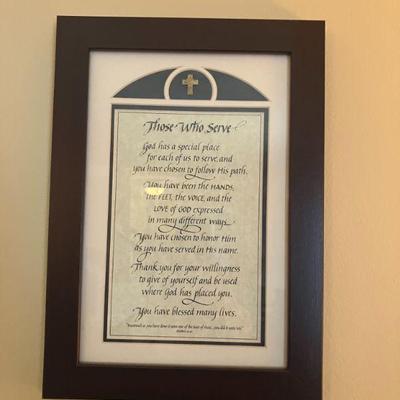 Those Who Serve
God has a special place
for each of us to serve, and
you have chosen to follow His path.
You have been the HANDS,
the FEET, the VOICE, and the
LOVE of GOD expressed
in many different ways.
You have chosen to honor Him
as you have served in His name.
Thank you for your willingness
to give of yourself and be used
where God has placed you.
You have blessed many lives.
"Inasmuch as you have done it unto one of the least of these... you did it unto Me."